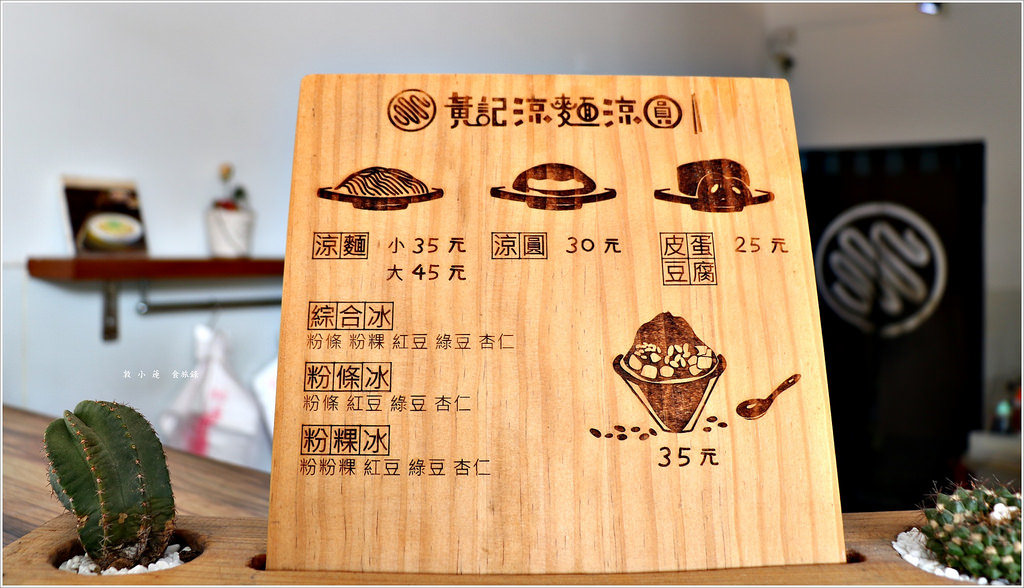 黃記涼麵涼圓
涼麵 小35元 涼圓 30元 皮蛋豆腐 25元
大45元
綜合冰
粉條 粉粿 紅豆 綠豆 杏仁
粉條冰
粉條 紅豆 綠豆 杏仁
粉粿冰
粉粉粿 紅豆 綠豆 杏仁
35元
敦 小 蓮 食旅錄